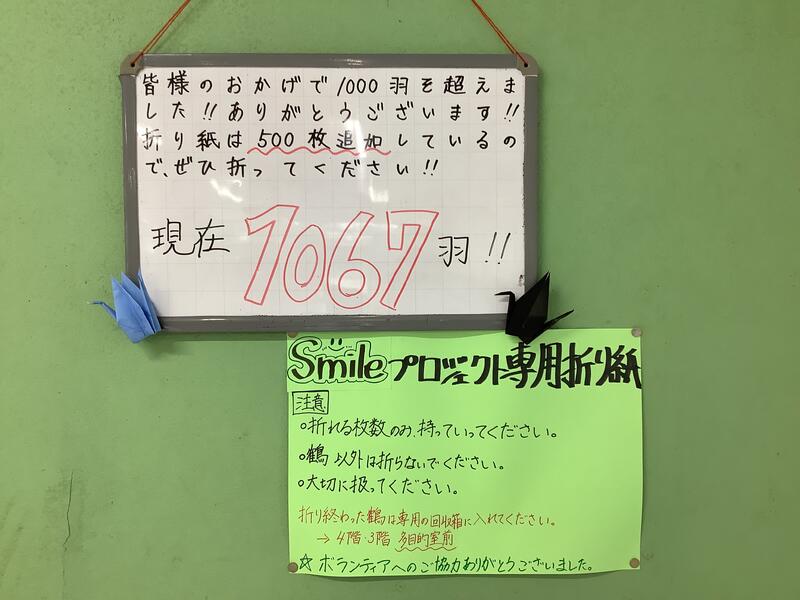 皆様のおかげで1000羽を超えま
した!!ありがとうございます!!
折り紙は500枚追加しているの
で、ぜひ折ってください!!
現在 1067羽!!
Smileプロジェクト専用折り紙
注意
○折れる枚数のみ、持っていってください。
○鶴以外は折らないでください。
○大切に扱ってください。
折り終わった鶴は専用の回収箱に入れてください。
→ 4階・3階 多目的室前
☆ボランティアへのご協力ありがとうございました。